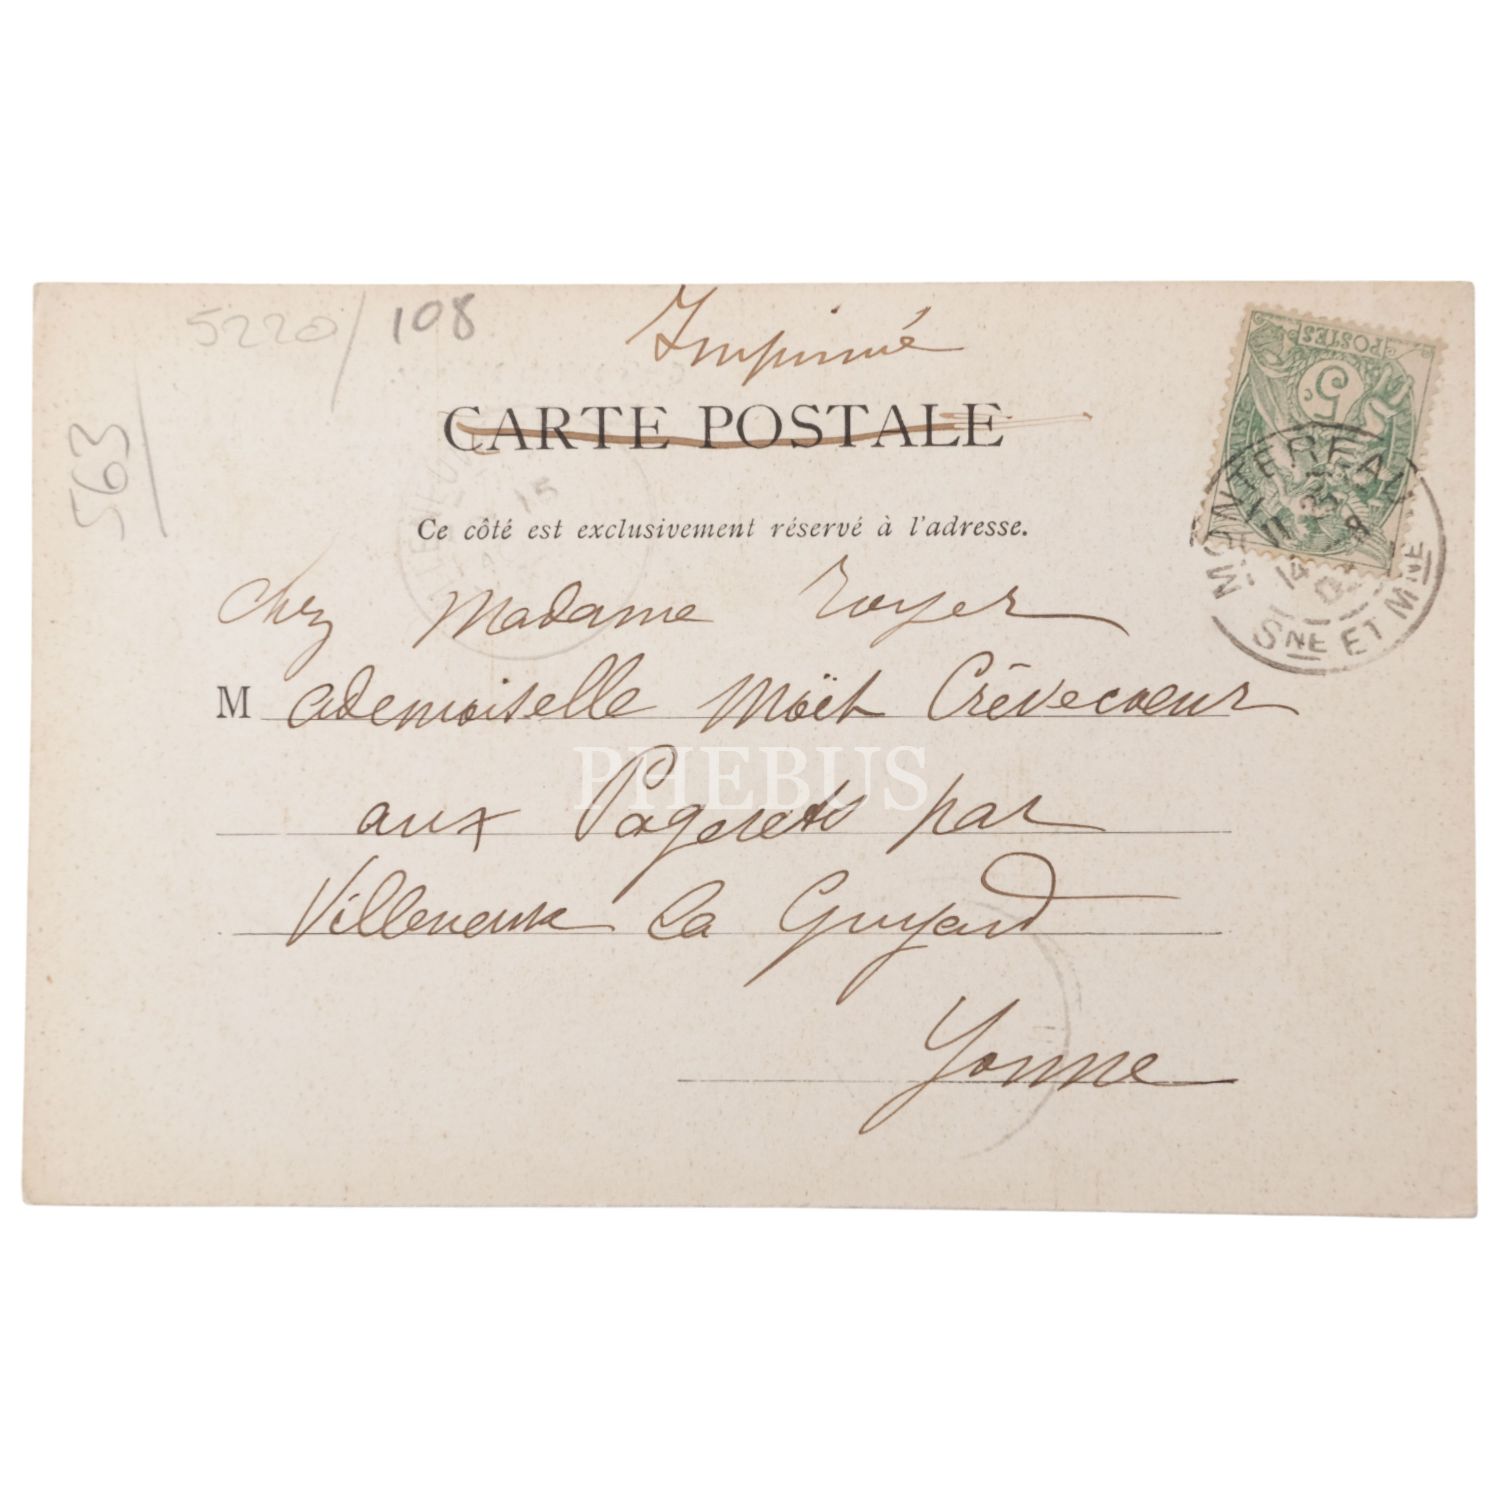 5220/108
563
Imprimé
CARTE POSTALE
Ce côté est exclusivement réservé à l'adresse.
chez Madame Royer
Mademoiselle Moët Crèvecoeur
aux Pagerets par
Villeneuve la Guyard
Yonne
POSTES
5 c
MONTEREAU
SNE ET MNE
PHEBUS